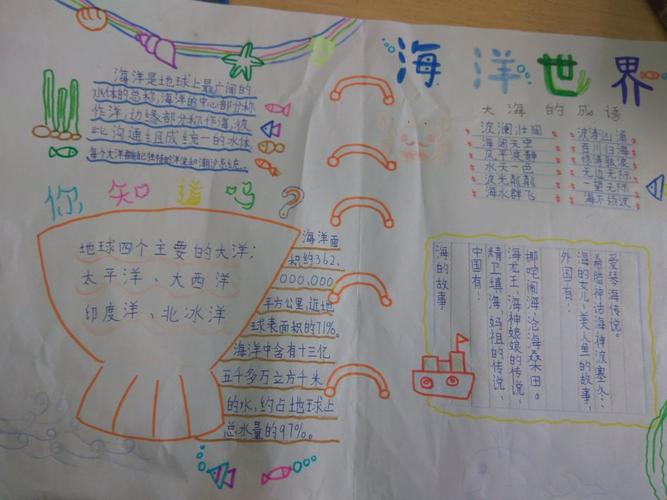 海洋世界
大海的成语
波澜壮阔
海阔天空
风平浪静
水天一色
波光粼粼
海水群飞
波涛汹涌
百川归海
惊涛骇浪
无边无际
一望无际
海不扬波
海洋是地球上最广阔的
水体的总称,海洋的中心部分称
作洋,边缘部分称作海,彼
此沟通组成统一的水体
每个大洋都有自己独特的洋流和潮汐系统
你知道吗?
地球四个主要的大洋:
太平洋、大西洋
印度洋、北冰洋
海洋面
积约362,
000,000
平方公里,近地
球表面积的71%。
海洋中含有十三亿
五千多万立方千米
的水,约占地球上
总水量的97%。
海的故事
中国有:
精卫填海,妈祖的传说,
海龙王、海神娘娘的传说,
挪咤闹海,沧海桑田。
外国有:
海的女儿,美人鱼的故事,
希腊神话海神波塞冬,
爱琴海传说。